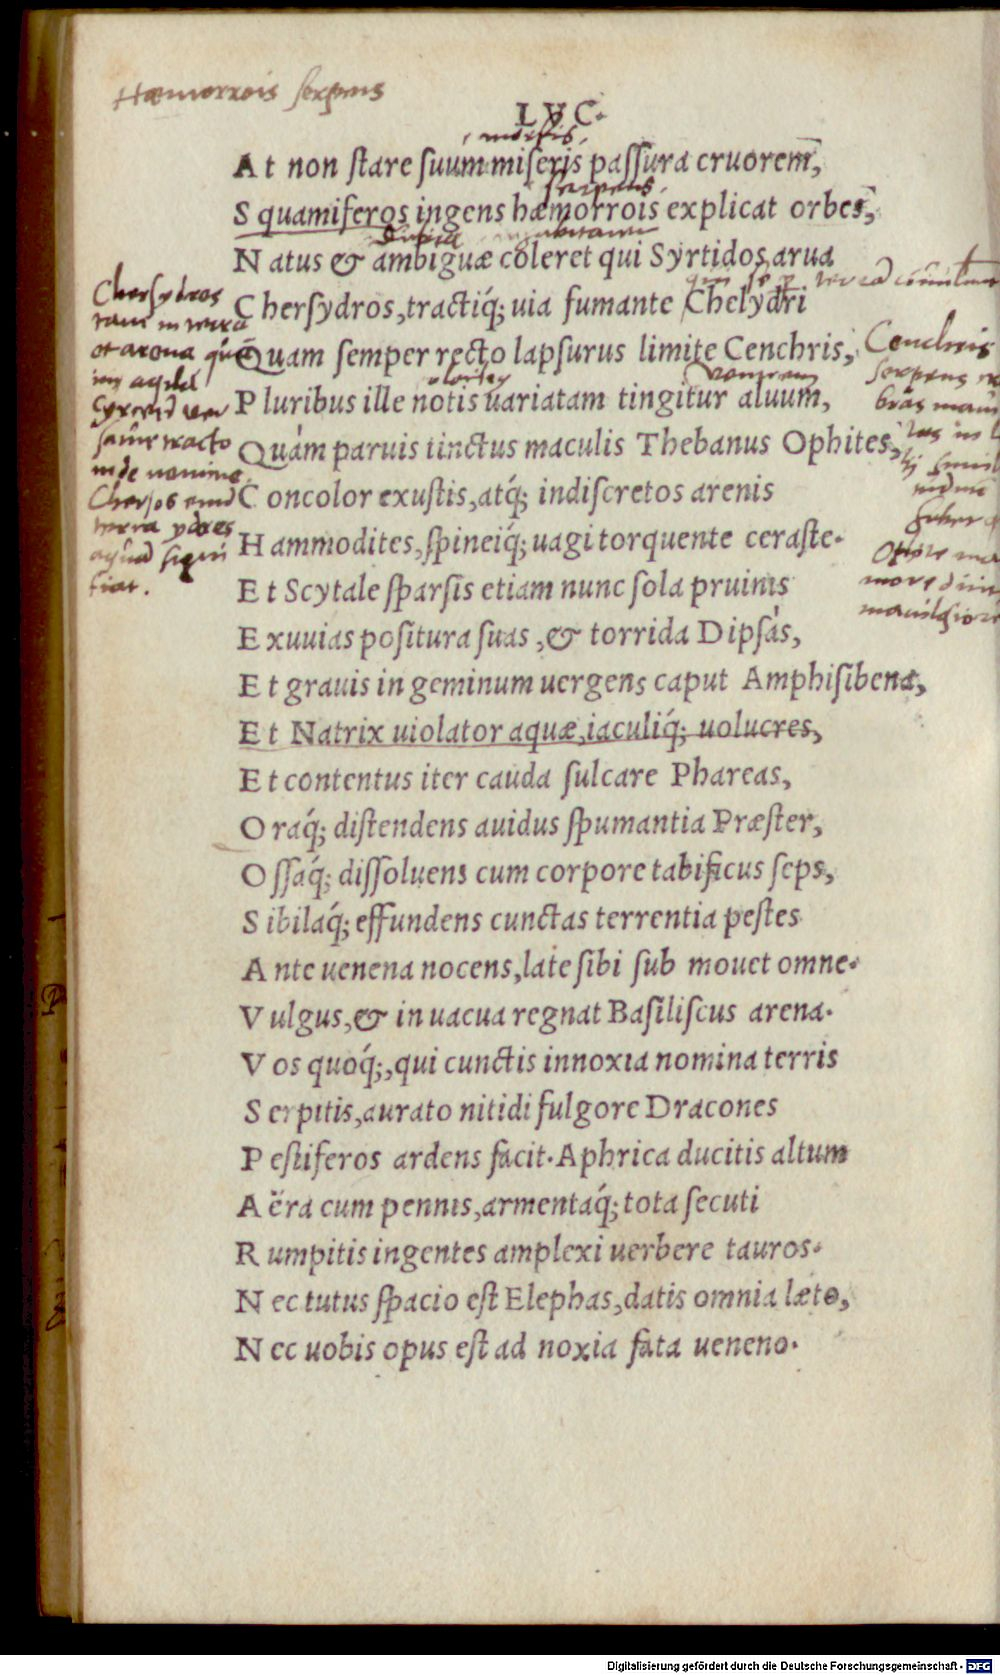 Hæmorrois serpens
LVC.
morsis
At non stare suum miseris passura cruorem,
serpens
Squamiferos ingens hæmorrois explicat orbes,
Natus & ambiguæ coleret qui Syrtidos arua
Chersydros, tractiq́; uia fumante Chelydri
Quam semper recto lapsurus limite Cenchris,
ventrem
Pluribus ille notis uariatam tingitur aluum,
Quàm paruis tinctus maculis Thebanus Ophites,
Concolor exustis, atq́; indiscretos arenis
Hammodites, spineiq́; uagi torquente ceraste.
Et Scytale sparsis etiam nunc sola pruinis
Exuuias positura suas, & torrida Dipsàs,
Et grauis in geminum uergens caput Amphisibena,
Et Natrix uiolator aquæ, iaculiq́; uolucres,
Et contentus iter cauda sulcare Phareas,
Oraq́; distendens auidus spumantia Præster,
Ossaq́; dissoluens cum corpore tabificus seps,
Sibilaq́; effundens cunctas terrentia pestes
Ante uenena nocens, late sibi sub mouet omne.
Vulgus, & in uacua regnat Basiliscus arena.
Vos quoq́;, qui cunctis innoxia nomina terris
Serpitis, aurato nitidi fulgore Dracones
Pestiferos ardens facit. Aphrica ducitis altum
Aëra cum pennis, armentaq́; tota secuti
Rumpitis ingentes amplexi uerbere tauros.
Nec tutus spacio est Elephas, datis omnia læto,
Nec uobis opus est ad noxia fata ueneno.
Chersydros
tam in terra
et arena
in aqua
tracto
inde nomine
Chersos
terra ydros
aquā
Cenchris
serpens
Digitalisierung gefördert durch die Deutsche Forschungsgemeinschaft - DFG